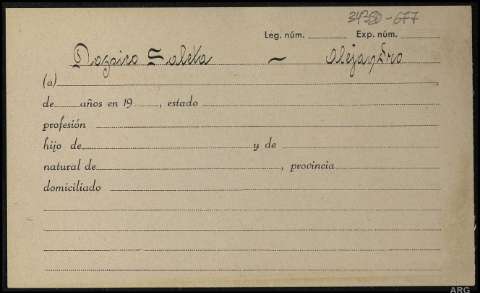 Leg. núm. Exp. núm.
Saleta - Alejandro
(a)
de años en 19 , estado
profesión
hijo de y de
natural de , provincia
domiciliado
ARG